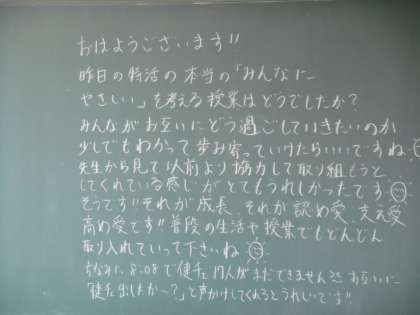 おはようございます!!
昨日の特活の本当の「みんなに
やさしい」を考える授業はどうでしたか?
みんながお互いにどう過ごしていきたいのか
少しでもわかって歩み寄っていけたらいいですね
先生から見て以前より協力して取り組もうと
してくれている感じがとてもうれしかったです
そうです!!それが成長、それが認め愛、支え愛
高め愛です!!普段の生活や授業でもどんどん
取り入れていって下さいね
ちなみに8:08で健チェ17人がまだできません お互いに
「健チェ出したかー?」と声かけしてくれるとうれしいです!!